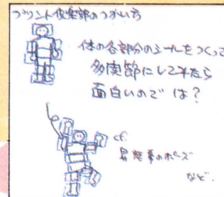 プリント倶楽部のつかい方
体の各部分のシールをつくって
多関節にしてみたら
面白いのでは?
cf.
昇竜拳のポーズ
など.